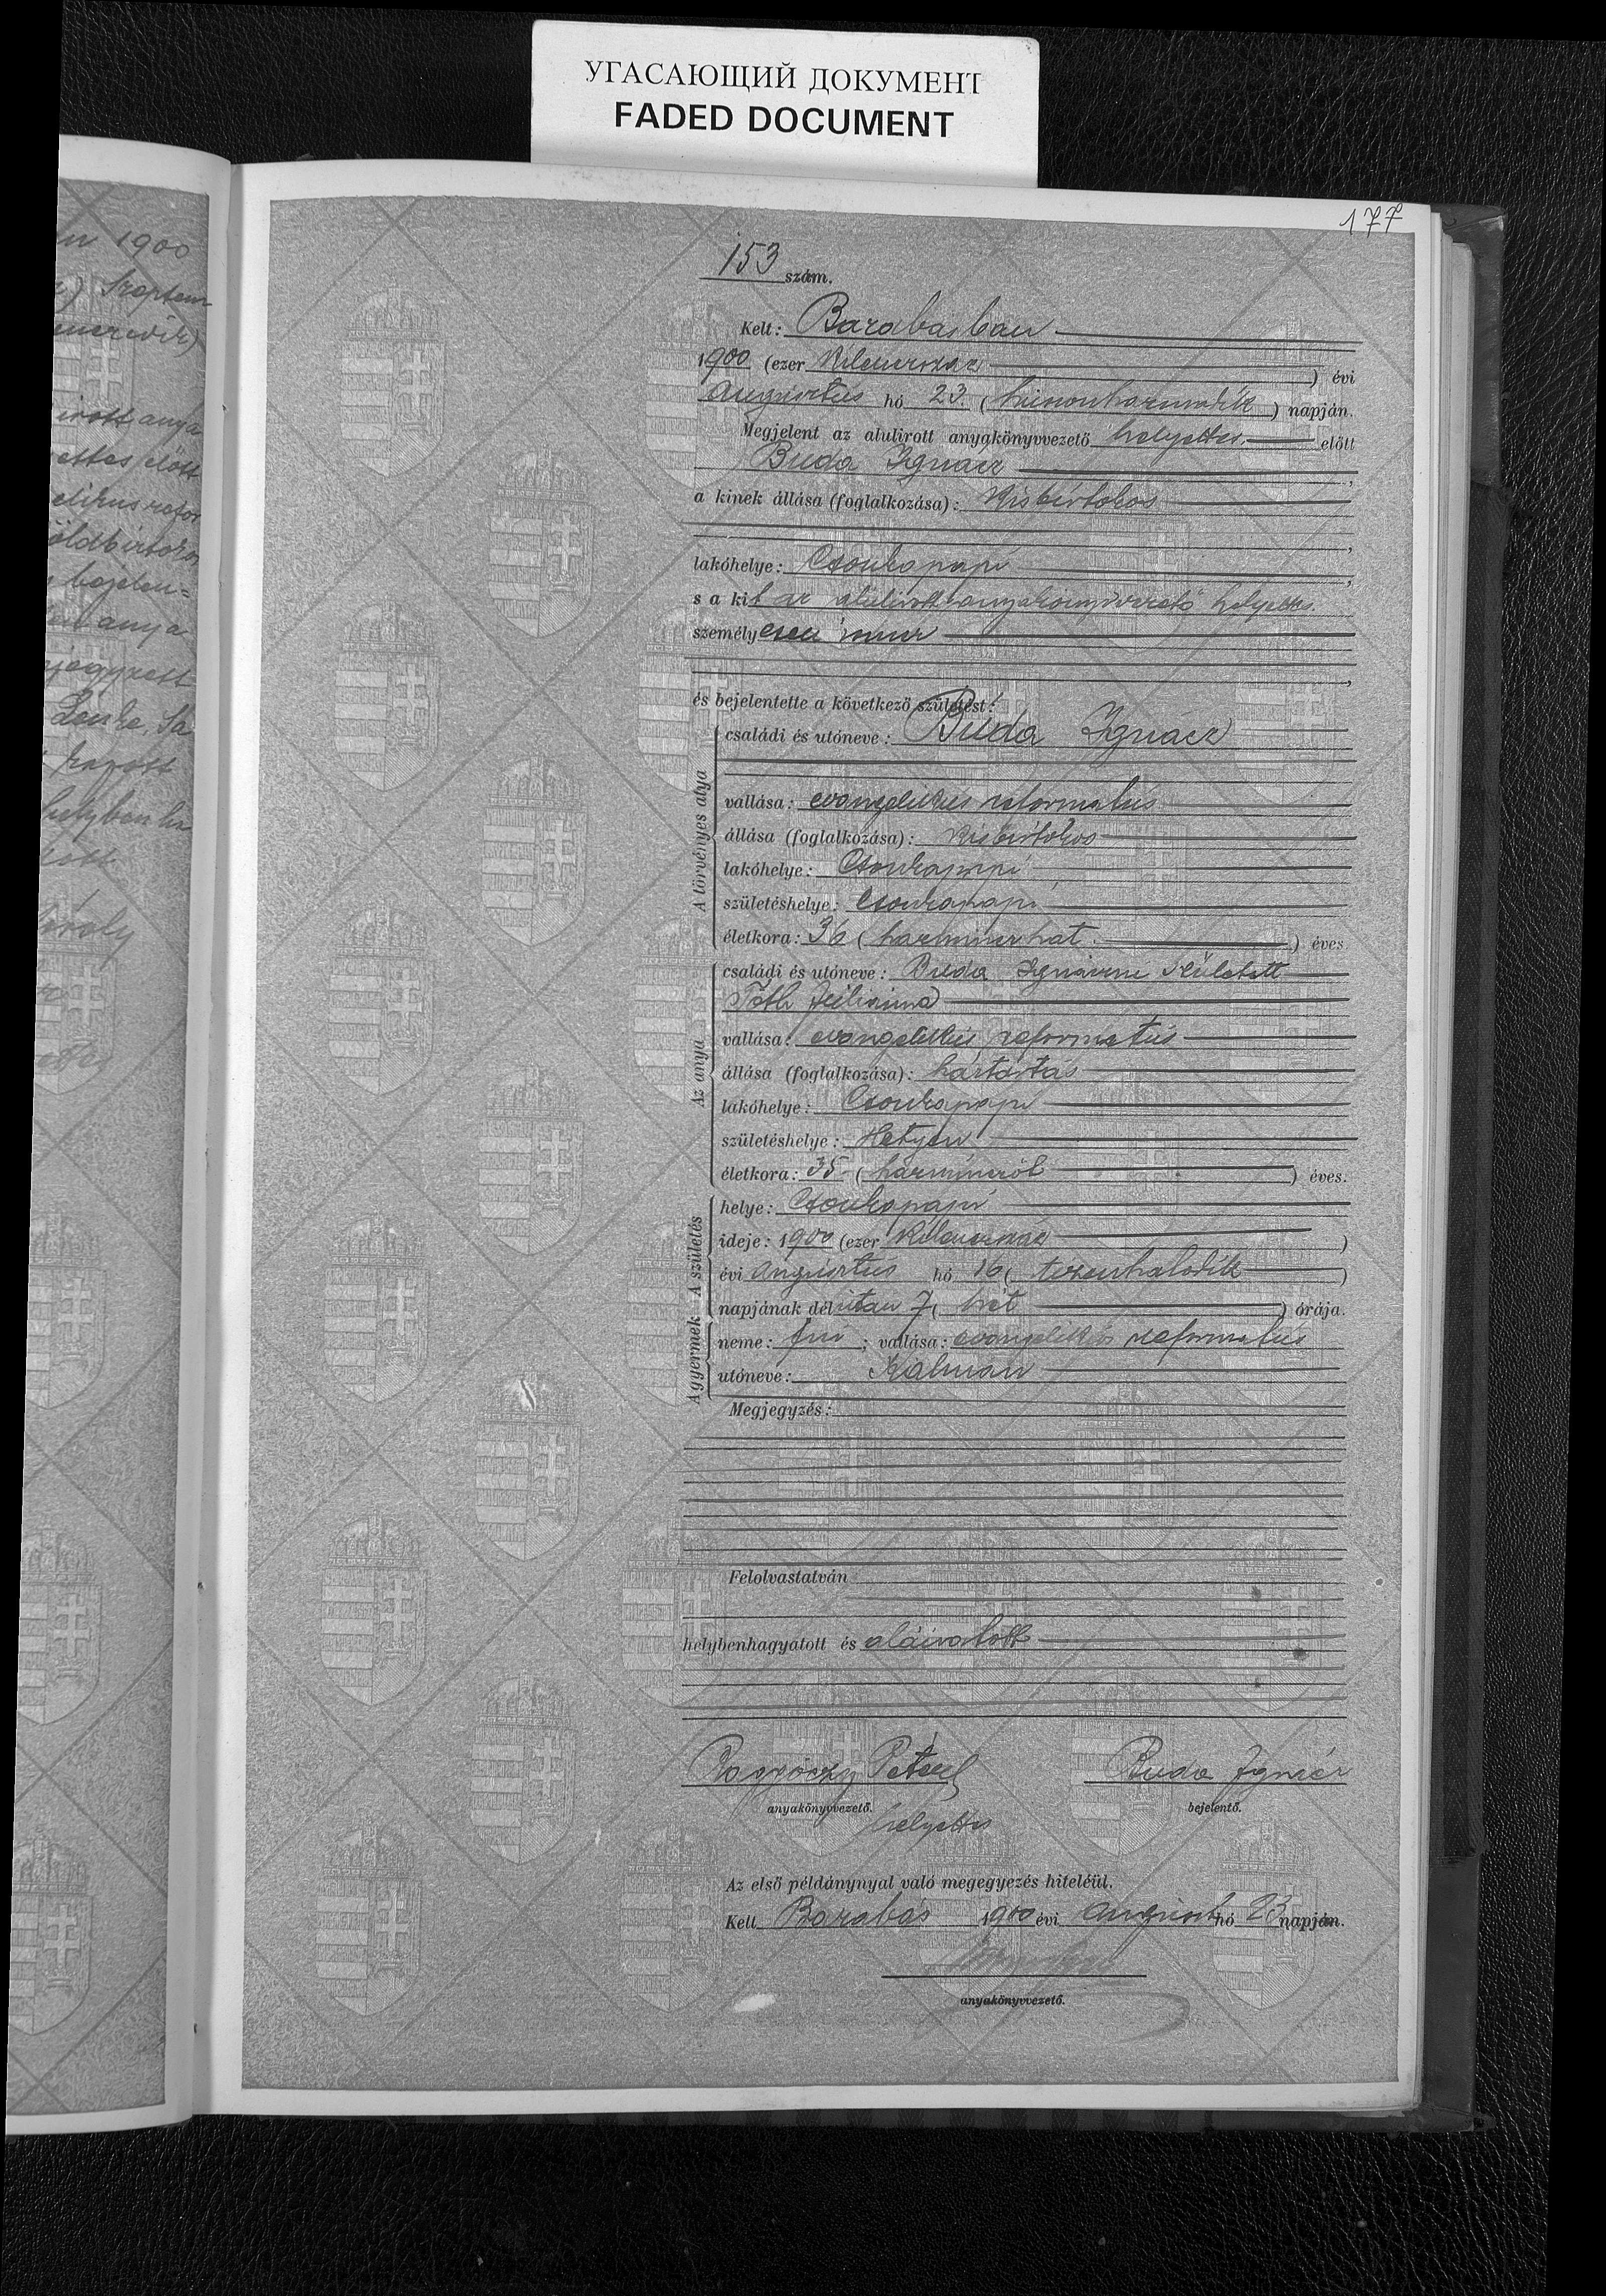 УГАСАЮЩИЙ ДОКУМЕНТ
FADED DOCUMENT
177
1900
153 szám.
Kelt: Barabásban
1900 (ezer kilencszáz ) évi
augusztus hó 23. ( huszonharmadik ) napján.
Megjelent az alulirott anyakönyvvezető helyettes előtt
Buda Ignácz ,
a kinek állása (foglalkozása): kisbirtokos
,
lakóhelye: Csonkapapi ,
s a kit az alulirott anyakönyvvezető helyettes
személyesen ismer
,
és bejelentette a következő születést:
A törvényes atya
családi és utóneve: Buda Ignácz
vallása: evangelikus református
állása (foglalkozása): kisbirtokos
lakóhelye: Csonkapapi
születéshelye: Csonkapapi
életkora: 36 ( harminczhat ) éves.
Az anya
családi és utóneve: Buda Ignáczné született
Tóth Juliánna
vallása: evangelikus református
állása (foglalkozása): háztartás
lakóhelye: Csonkapapi
születéshelye: Hetyen
életkora: 35 ( harminczöt ) éves.
A születés
helye: Csonkapapi
ideje: 1900 (ezer kilenczszáz )
évi augusztus hó 16 ( tizenhatodik )
napjának délután 7 ( hét ) órája.
A gyermek
neme: fiú ; vallása: evangelikus református
utóneve: Kálmán
Megjegyzés:
Felolvastatván
helybenhagyatott és aláíratott
Péter Buda Ignácz
anyakönyvvezető. bejelentő.
helyettes
Az első példánynyal való megegyezés hiteléül.
Kelt Barabás 1900 évi august hó 23 napján.
anyakönyvvezető.